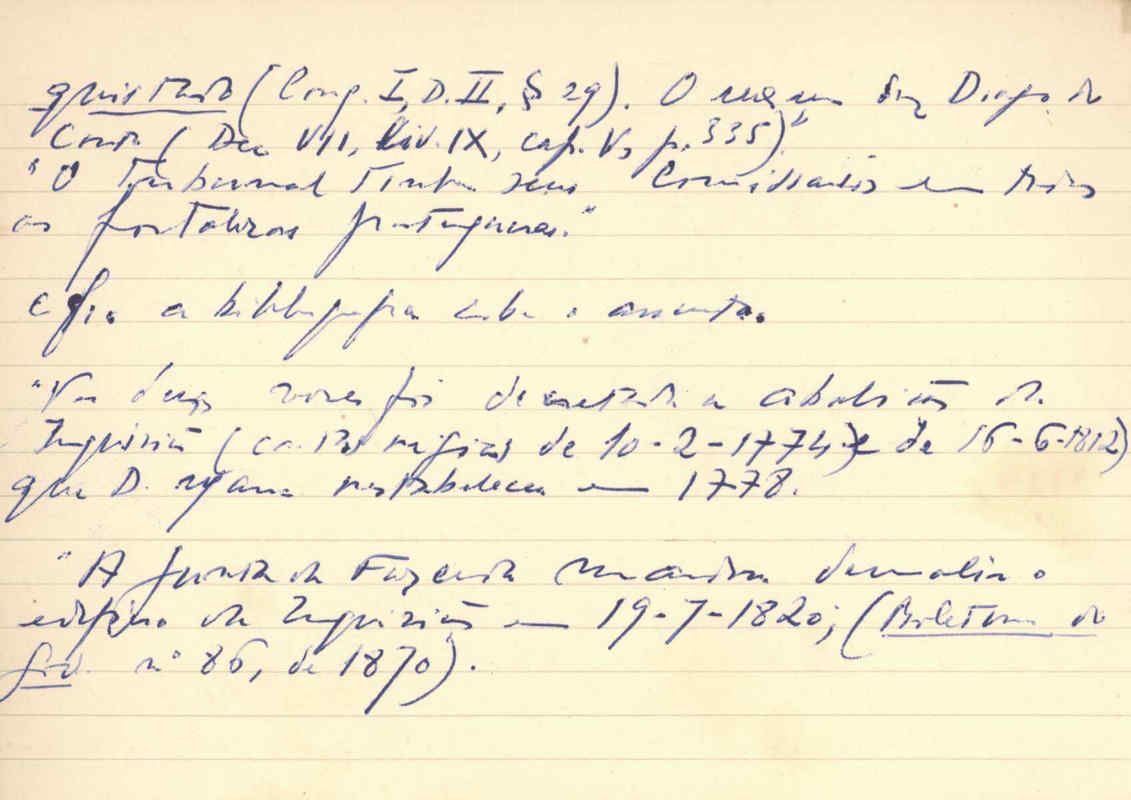 quistado (Conq. I, D. II, § 29). O mesmo diz Diogo do
Couto (Dec VII, Liv. IX, cap. V, p. 335)"
"O Tribunal tinha seus Comissários em todas
as fortalezas portuguesas."
a bibliografia sobre o assunto.
"Por duas vezes foi decretada a abolição da
Inquisição (cartas régias de 10-2-1774) e de 16-6-1812)
que D. Maria restabeleceu em 1778.
"A Junta da Fazenda mandou demolir o
edifício da Inquisição em 19-7-1820; (Boletim do
Gov. nº 86, de 1870).